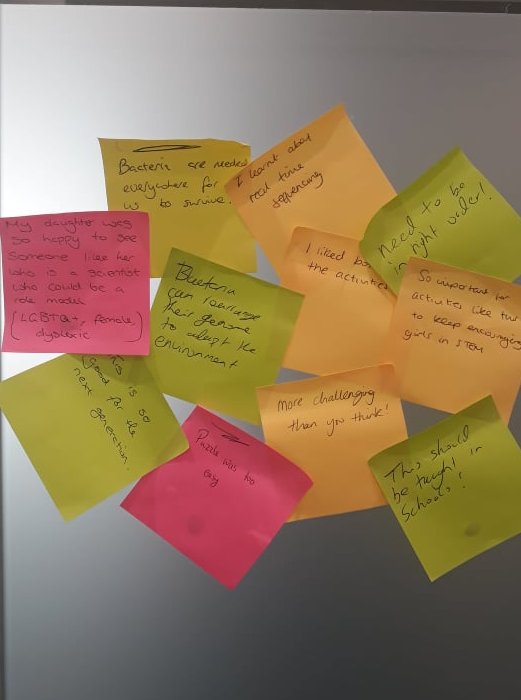 Bacteria are needed
everywhere for
us to survive.
I learnt about
real time
sequencing
Need to be
in right order!
My daughter was
so happy to see
someone like her
who is a scientist
who could be a
role model
(LGBTQ+, female,
dyslexic)
Bacteria
can rearrange
their genome
to adapt the
environment
I liked
the activities
So important for
activities like this
to keep encouraging
girls in STEM
This is so
good for the
next generation.
More challenging
than you think!
Puzzle was too
easy
This should
be taught in
Schools!